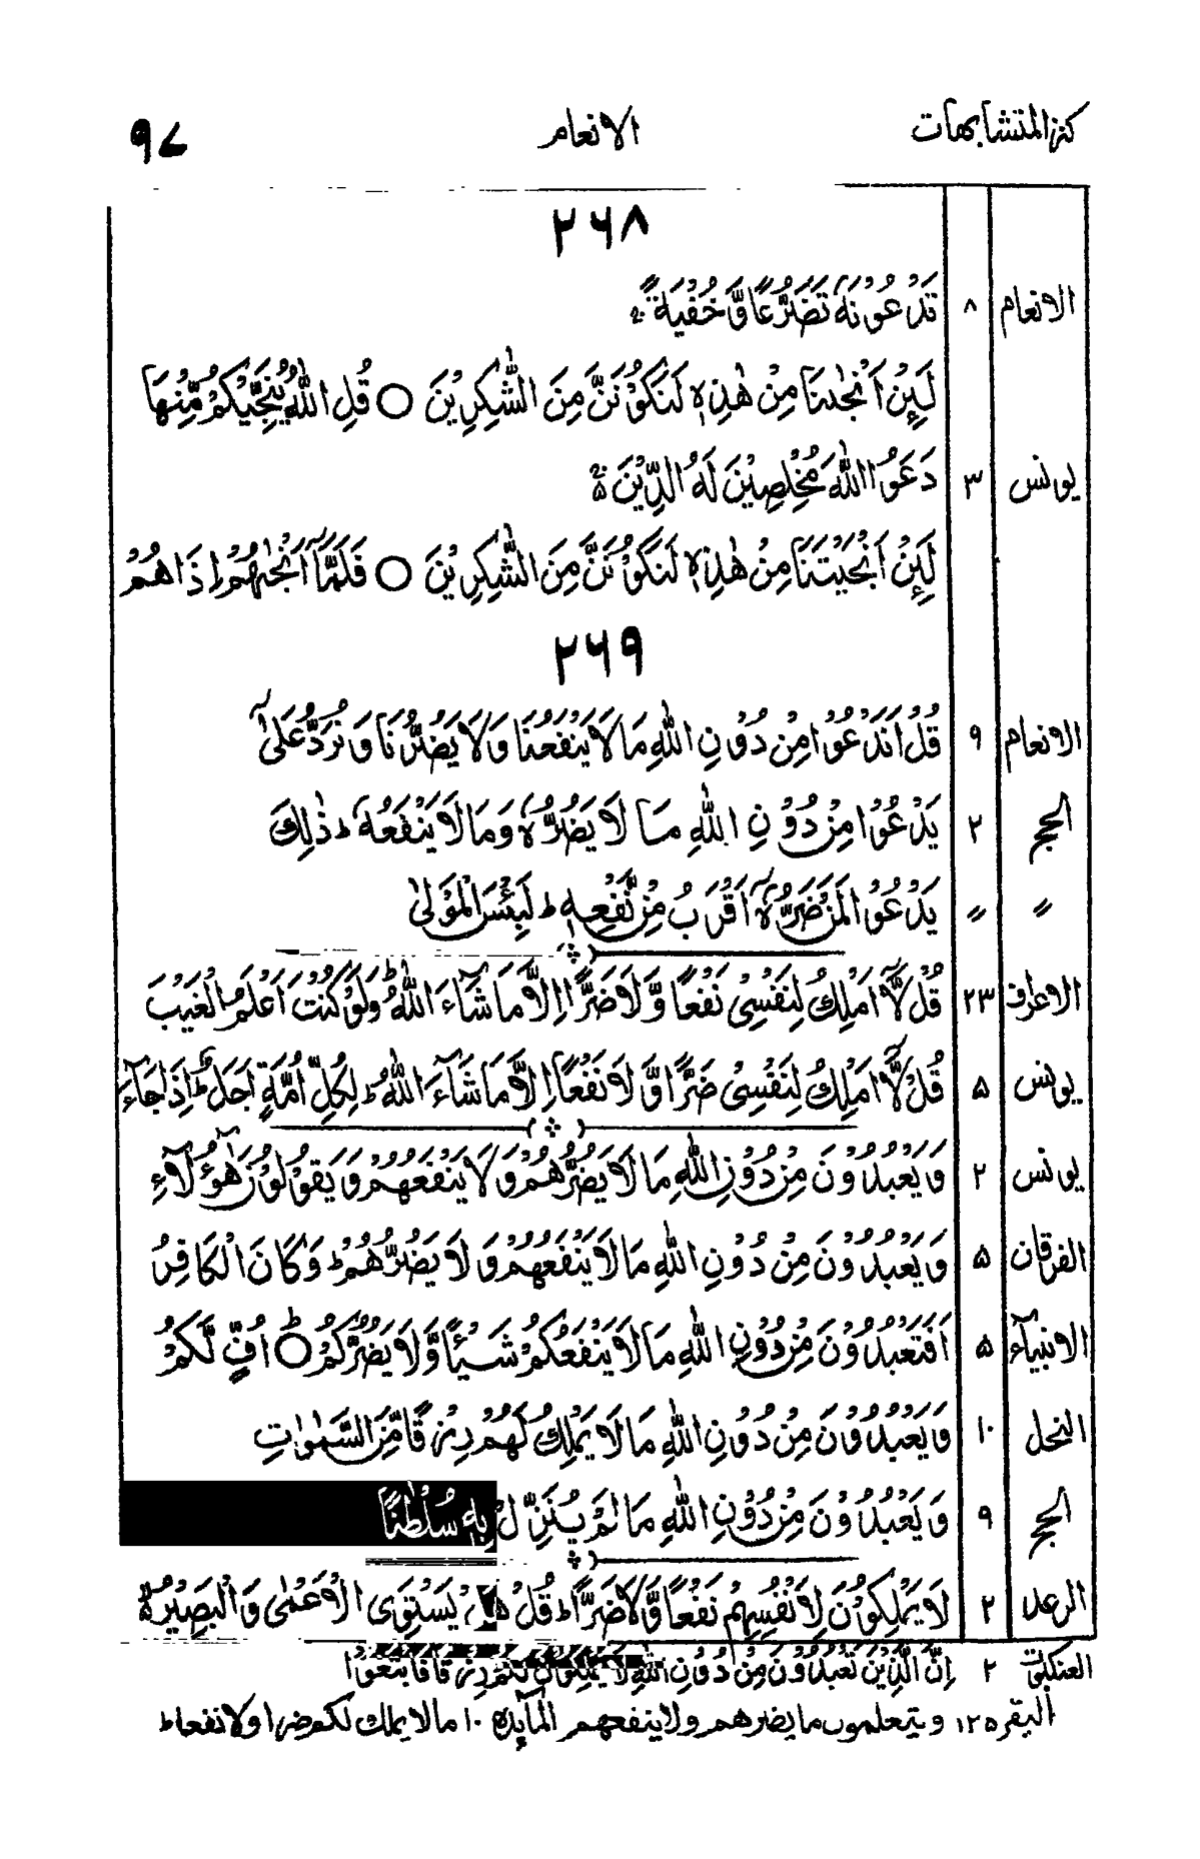 كنز المتشابهات الانعام ٩٧
٢٦٨
الانعام ٨ تَدْعُوْنَهٗ تَضَرُّعًا وَّ خُفْيَةً ۚ
لَئِنْ اَنْجٰىنَا مِنْ هٰذِهٖ لَنَكُوْنَنَّ مِنَ الشّٰكِرِيْنَ ○ قُلِ اللّٰهُ يُنَجِّيْكُمْ مِّنْهَا
يونس ٣ دَعَوُا اللّٰهَ مُخْلِصِيْنَ لَهُ الدِّيْنَ ۚ
لَئِنْ اَنْجَيْتَنَا مِنْ هٰذِهٖ لَنَكُوْنَنَّ مِنَ الشّٰكِرِيْنَ ○ فَلَمَّآ اَنْجٰىهُمْ اِذَا هُمْ
٢٦٩
الانعام ٩ قُلْ اَنَدْعُوْا مِنْ دُوْنِ اللّٰهِ مَا لَا يَنْفَعُنَا وَلَا يَضُرُّنَا وَ نُرَدُّ عَلٰٓى
الحج ٢ يَدْعُوْا مِنْ دُوْنِ اللّٰهِ مَا لَا يَضُرُّهٗ وَمَا لَا يَنْفَعُهٗ ؕ ذٰلِكَ
〃 〃 يَدْعُوْا لَمَنْ ضَرُّهٗٓ اَقْرَبُ مِنْ نَّفْعِهٖ ؕ لَبِئْسَ الْمَوْلٰى
الاعراف ٢٣ قُلْ لَّآ اَمْلِكُ لِنَفْسِىْ نَفْعًا وَّ لَا ضَرًّا اِلَّا مَا شَآءَ اللّٰهُ ؕ وَلَوْ كُنْتُ اَعْلَمُ الْغَيْبَ
يونس ٥ قُلْ لَّآ اَمْلِكُ لِنَفْسِىْ ضَرًّا وَّ لَا نَفْعًا اِلَّا مَا شَآءَ اللّٰهُ ؕ لِكُلِّ اُمَّةٍ اَجَلٌ ؕ اِذَا جَآءَ
يونس ٢ وَ يَعْبُدُوْنَ مِنْ دُوْنِ اللّٰهِ مَا لَا يَضُرُّهُمْ وَ لَا يَنْفَعُهُمْ وَ يَقُوْلُوْنَ هٰٓؤُلَآءِ
الفرقان ٥ وَ يَعْبُدُوْنَ مِنْ دُوْنِ اللّٰهِ مَا لَا يَنْفَعُهُمْ وَ لَا يَضُرُّهُمْ ؕ وَ كَانَ الْكَافِرُ
الانبيآء ٥ اَفَتَعْبُدُوْنَ مِنْ دُوْنِ اللّٰهِ مَا لَا يَنْفَعُكُمْ شَيْئًا وَّ لَا يَضُرُّكُمْ ○ؕ اُفٍّ لَّكُمْ
النحل ١٠ وَ يَعْبُدُوْنَ مِنْ دُوْنِ اللّٰهِ مَا لَا يَمْلِكُ لَهُمْ رِزْقًا مِّنَ السَّمٰوٰتِ
الحج ٩ وَ يَعْبُدُوْنَ مِنْ دُوْنِ اللّٰهِ مَا لَمْ يُنَزِّلْ بِهٖ سُلْطٰنًا
الرعد ٢ لَا يَمْلِكُوْنَ لِاَنْفُسِهِمْ نَفْعًا وَّ لَا ضَرًّا ؕ قُلْ هَلْ يَسْتَوِى الْاَعْمٰى وَ الْبَصِيْرُ ۬ۙ
العنكبوت ٢ اِنَّ الَّذِيْنَ تَعْبُدُوْنَ مِنْ دُوْنِ اللّٰهِ لَا يَمْلِكُوْنَ لَكُمْ رِزْقًا فَابْتَغُوْا
البقر ١٢٥ و يتعلمون ما يضرهم ولا ينفعهم المآيده ١٠ مالا يملك لكم ضرا ولا نفعا ط